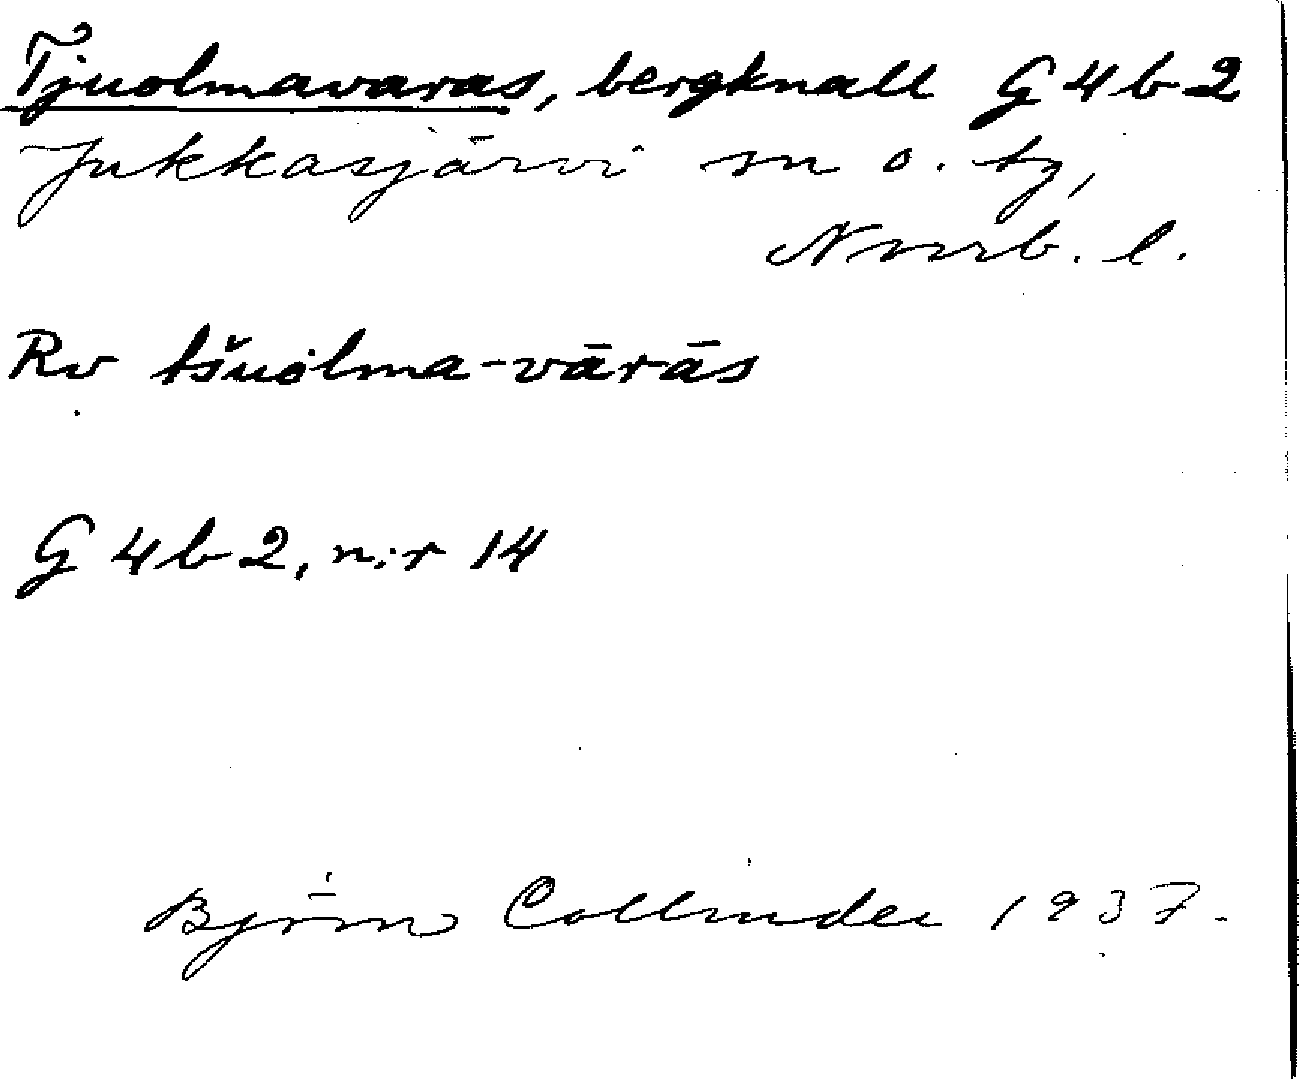 Tjuolmavaras, bergknall G 4 b 2
Jukkasjärvi sn o. tg,
Norrb. l.
Rv tšuolma-vārās
G 4 b 2, n:r 14
Björn Collinder 1937.